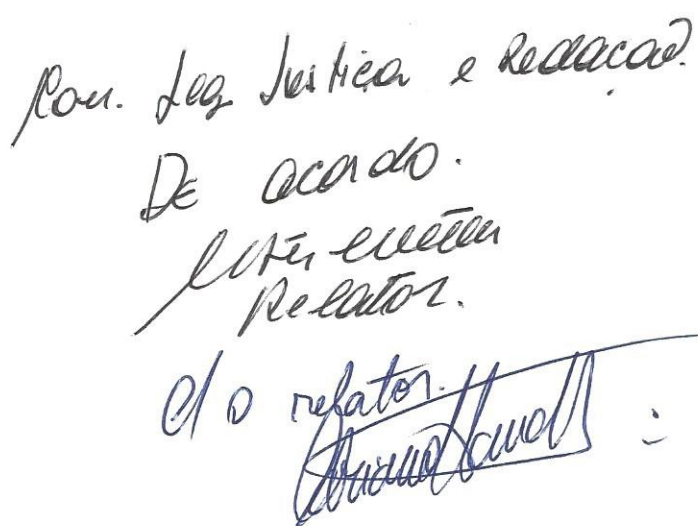 Com. Leg. Justiça e Redação.
De acordo.
Relator.
C/ o relator.